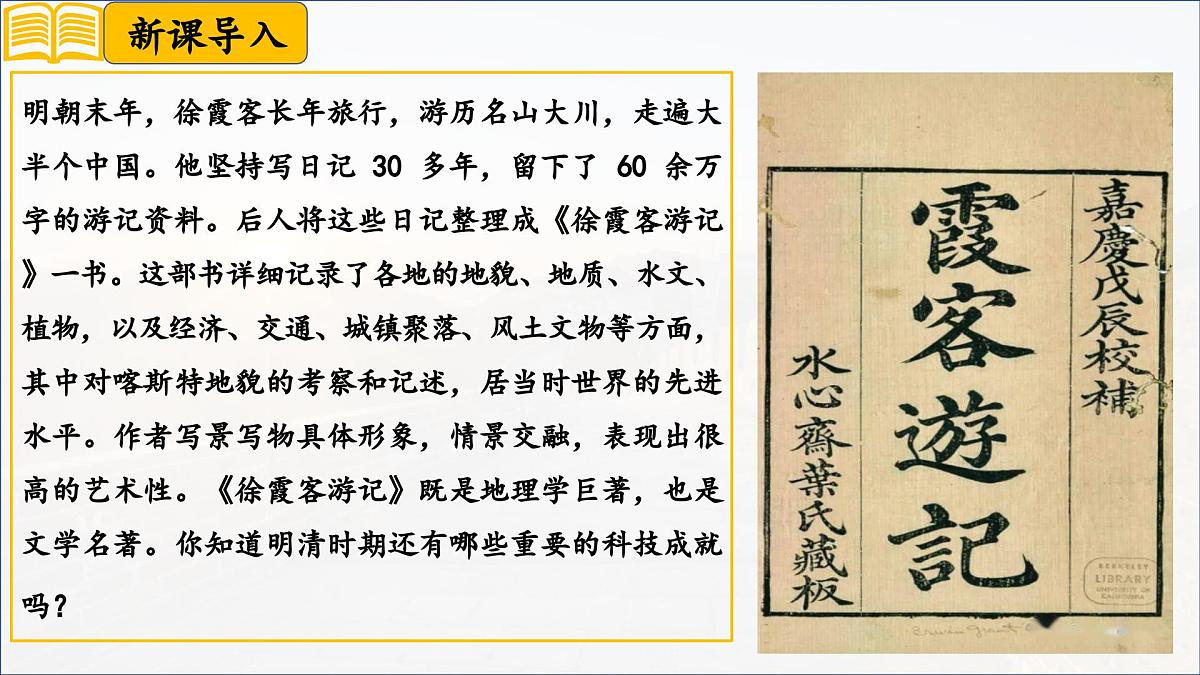 新课导入
明朝末年，徐霞客长年旅行，游历名山大川，走遍大
半个中国。他坚持写日记 30 多年，留下了 60 余万
字的游记资料。后人将这些日记整理成《徐霞客游记
》一书。这部书详细记录了各地的地貌、地质、水文、
植物，以及经济、交通、城镇聚落、风土文物等方面，
其中对喀斯特地貌的考察和记述，居当时世界的先进
水平。作者写景写物具体形象，情景交融，表现出很
高的艺术性。《徐霞客游记》既是地理学巨著，也是
文学名著。你知道明清时期还有哪些重要的科技成就
吗？
嘉慶戊辰校補
霞客遊記
水心齋葉氏藏板
BERKELEY
LIBRARY
UNIVERSITY OF
CALIFORNIA